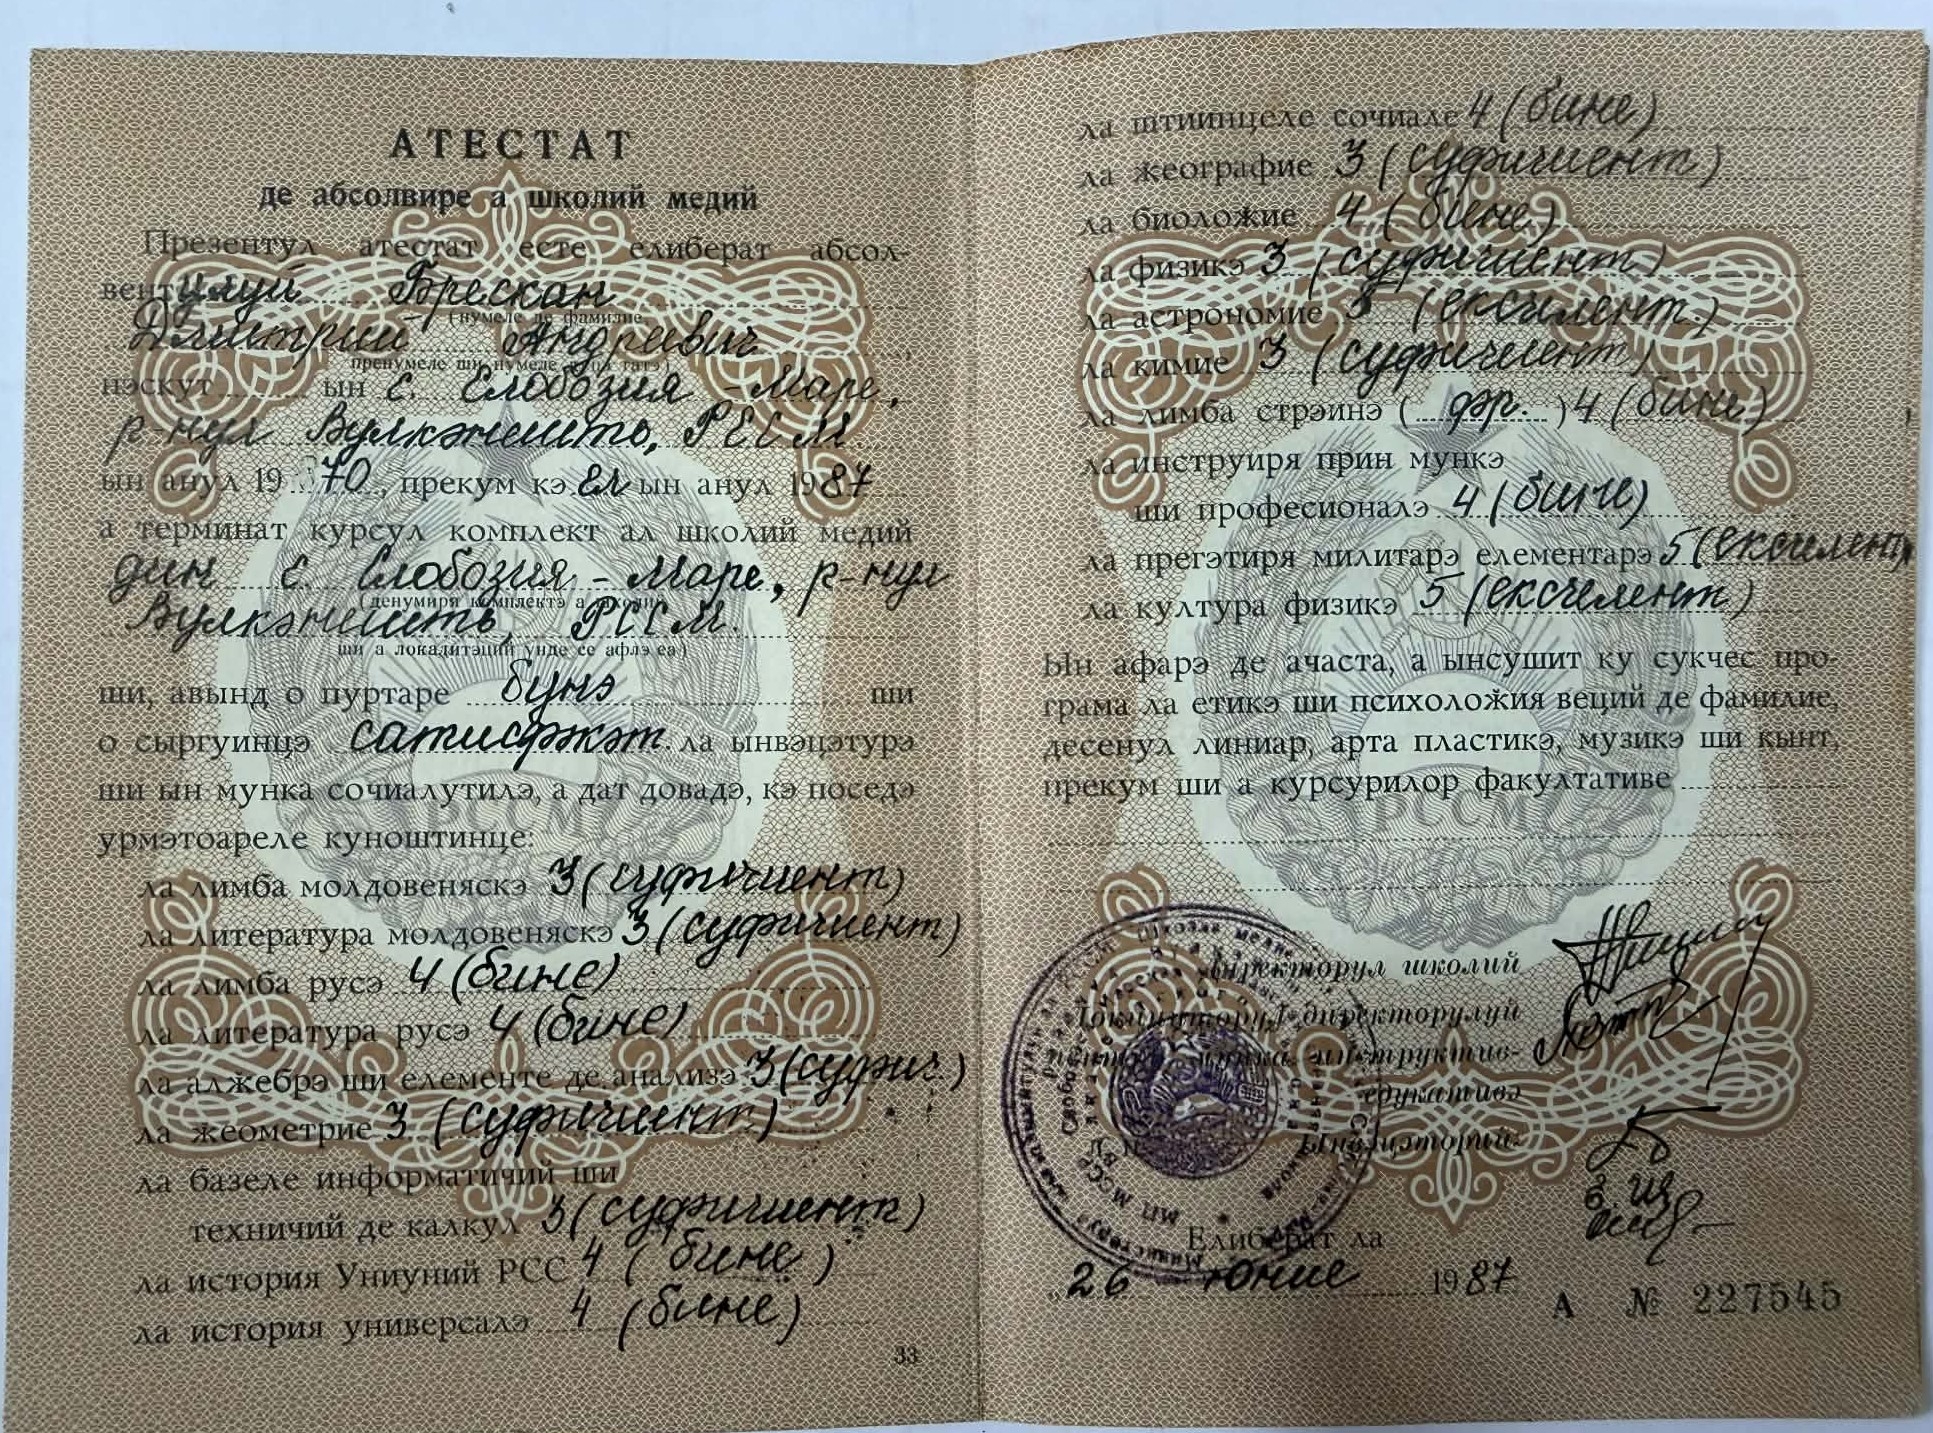 АТЕСТАТ
де абсолвире а школий медий
Презентул атестат есте елиберат абсол-
вентулуй Брескан
(нумеле де фамилие,
Дмитрий Андреевич
пренумеле ши нумеле татэ)
нэскут ын с. Слобозия-Маре,
р-нул Вулкэнешть, РССМ
ын анул 1970, прекум кэ ел ын анул 1987
а терминат курсул комплект ал школий медий
дин с. Слобозия-Маре, р-нул
(денумиря комплектэ а школий
Вулкэнешть, РССМ.
ши а локалитэций унде се афлэ еа)
ши, авынд о пуртаре бунэ ши
о сыргуинцэ сатисфэкэт. ла ынвэцэтурэ
ши ын мунка сочиалутилэ, а дат довадэ, кэ поседэ
урмэтоареле куноштинце:
ла лимба молдовеняскэ 3 (суфичиент)
ла литература молдовеняскэ 3 (суфичиент)
ла лимба русэ 4 (бине)
ла литература русэ 4 (бине)
ла алжебрэ ши елементе де анализэ 3 (суфич.)
ла жеометрие 3 (суфичиент)
ла базеле информатичий ши
техничий де калкул 3 (суфичиент)
ла история Униуний РСС 4 (бине)
ла история универсалэ 4 (бине)
33
ла штиинцеле сочиале 4 (бине)
ла жеографие 3 (суфичиент)
ла биоложие 4 (бине)
ла физикэ 3 (суфичиент)
ла астрономие 5 (ексчелент)
ла химие 3 (суфичиент)
ла лимба стрэинэ (фр.) 4 (бине)
ла инструиря прин мункэ
ши професионалэ 4 (бине)
ла прегэтиря милитарэ елементарэ 5 (ексчелент)
ла култура физикэ 5 (ексчелент)
Ын афарэ де ачаста, а ынсушит ку сукчес про-
грама ла етикэ ши психоложия веций де фамилие,
десенул линиар, арта пластикэ, музикэ ши кынт,
прекум ши а курсурилор факултативе
РССМ
РССМ
Директорул школий
Локцииторул директорулуй
пентру мунка инструктив-
едукативэ
Ынвэцэторий:
Елиберат ла
„26 юние 1987
А № 227545